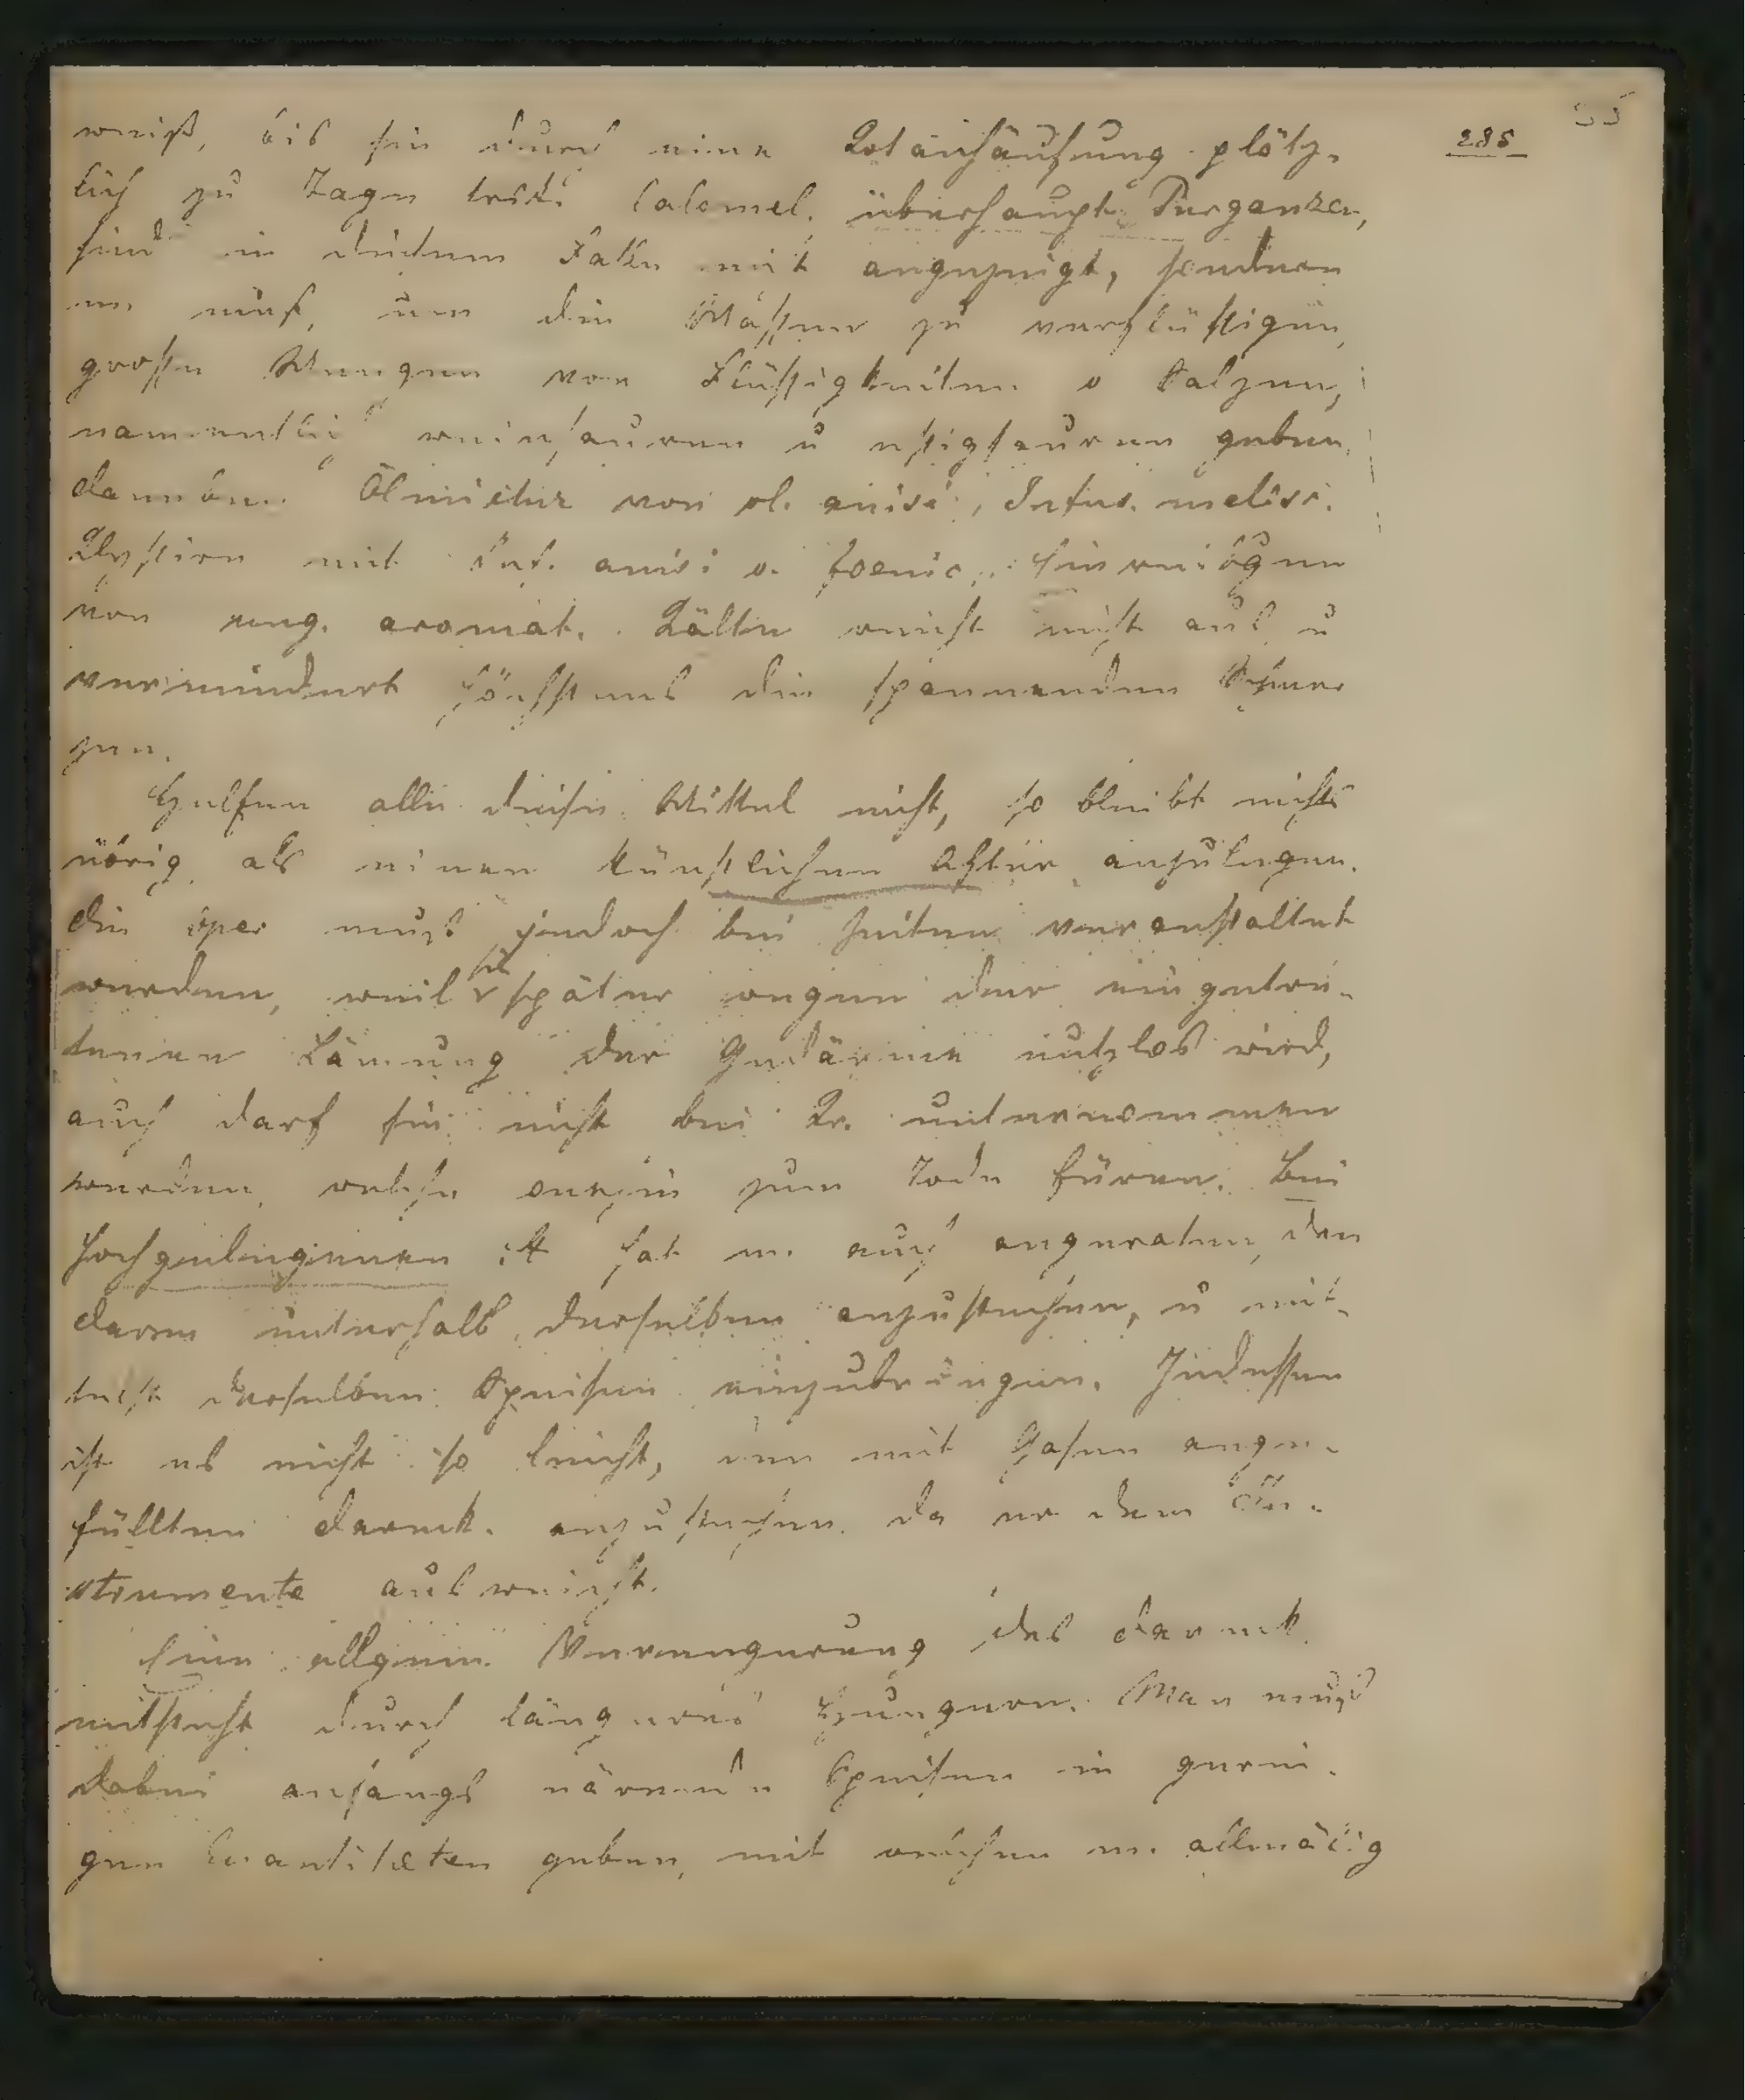 285
weiß, bis sie durch eine Kotanhäufung plötz-
lich zu Tage tritt. Calomel, überhaupt Purganzen,
sind in diesem Falle nicht angezeigt, sondern
m. muß, um die Massen zu verflüssigen,
großen Mengen von Flüssigkeiten u Salzen,
namentlich weinsauren u essigsauren geben,
daneben Ölmixtur von ol. anisi, Infus. meliss.
Klystire mit Inf. anisi u. foenic., Einreibgen
von ung. aromat. Kälte reicht nicht aus u
vermindert höchstens die spannenden Schmer
zen.
Helfen alle diese Mittel nicht, so bleibt nichts
übrig als einen künstlichen After anzulegen.
die Oper muß jedoch bei Zeiten veranstaltet
werden, weil sie später wegen der eingetre-
tenen Lämung der Gedärme nutzlos wird,
auch darf sie nicht bei Kr. unternommen
werden, welche zum Tode füren. Bei
hochgelegenen st hat m. auch angeraten, den
darm unterhalb derselben anzustechen, u mit-
telst derselben Speisen einzubringen. Indessen
ist es nicht so leicht, den mit Gasen ange-
füllten darmk. anzustechen da er dem In-
strumente ausweicht.
Eine allgem. Verengerung des darmk.
entsteht durch längeres Hungern. Man muß
dabei anfangs närende Speisen in gerin-
gen Quantitæten geben, mit welchen m. allmälig